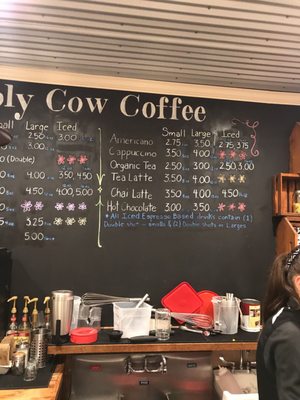 oly Cow Coffee
mall Large Iced
2.50 3.00
(Double) 3.00
4.00 3.50 4.50
4.50 4.00 5.00
3.25
5.00
Small Large Iced
Americano 2.75 3.50 2.75 3.75
Cappuccino 3.50 4.00
Organic Tea 2.50 3.00 2.50 3.00
Tea Latte 3.50 4.00
Chai Latte 3.50 4.00 4.50
Hot Chocolate 3.00 3.50
* All Iced Espresso Based drinks contain (1)
Double shot - smalls & (2) Double shots in Larges